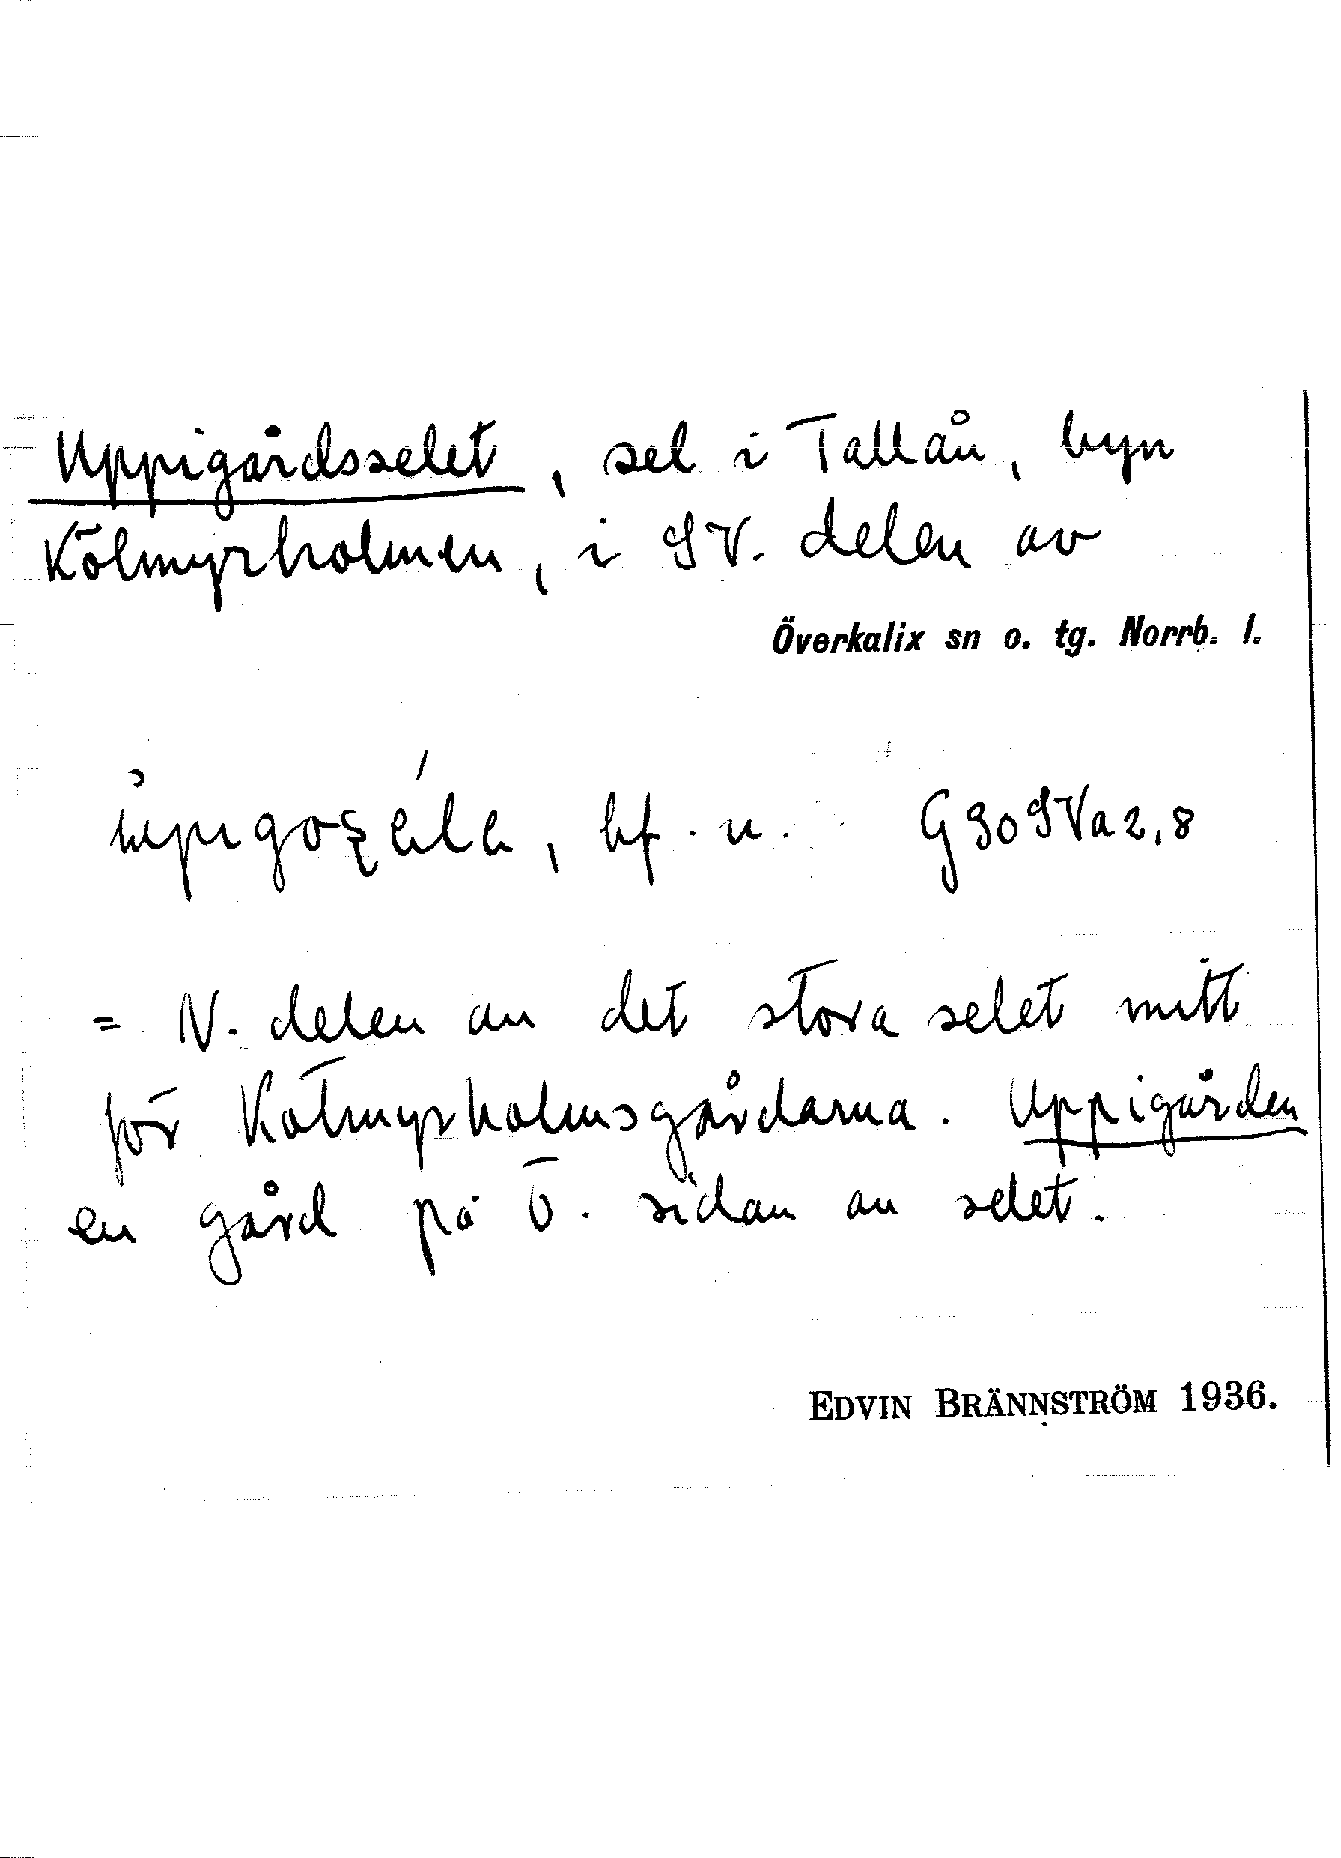 Uppigårdsselet, sel i Tallån, byn
Kölmyrholmen, i SV. delen av
Överkalix sn o. tg. Norrb. l.
bf. n. G 30 SVa 2,8
= N. delen av det stora selet mitt
för Kölmyrholmsgårdarna. Uppigården
en gård på Ö. sidan av selet.
EDVIN BRÄNNSTRÖM 1936.